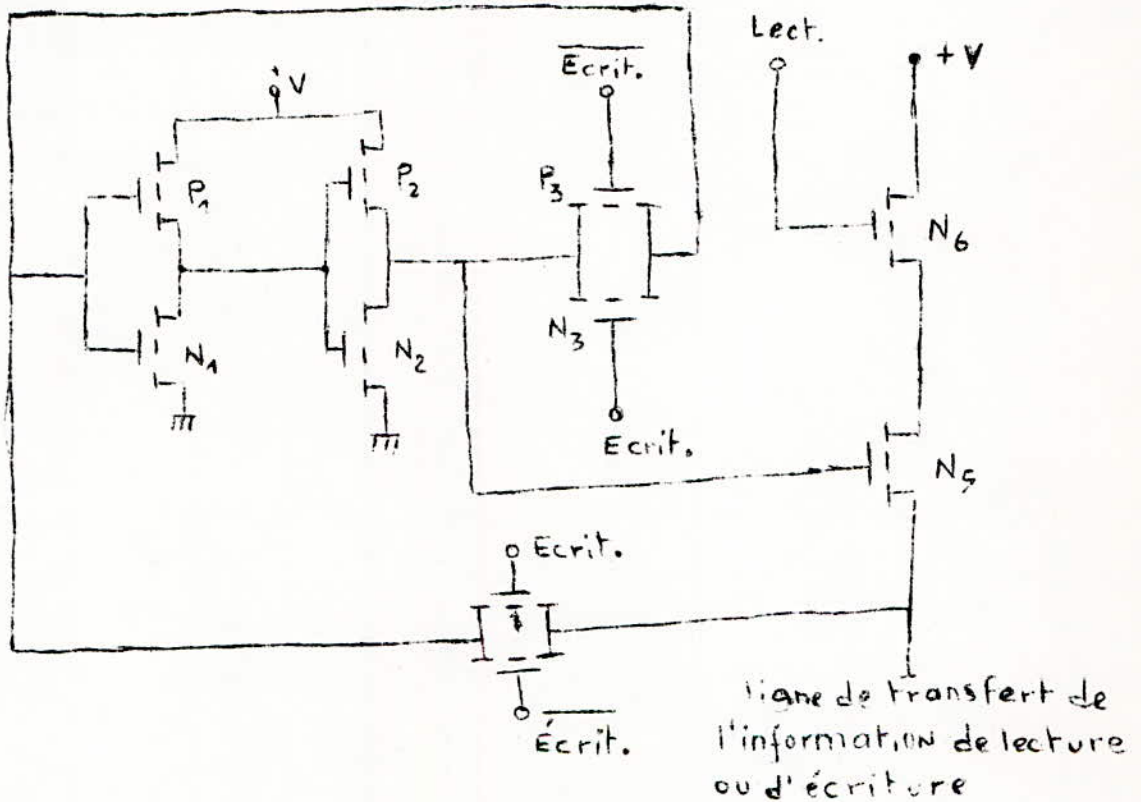 Lect.
+V
Écrit.
V
P1
P2
P3
N6
N1
N2
N3
Ecrit.
N5
Ecrit.
Écrit.
ligne de transfert de
l'information de lecture
ou d'écriture